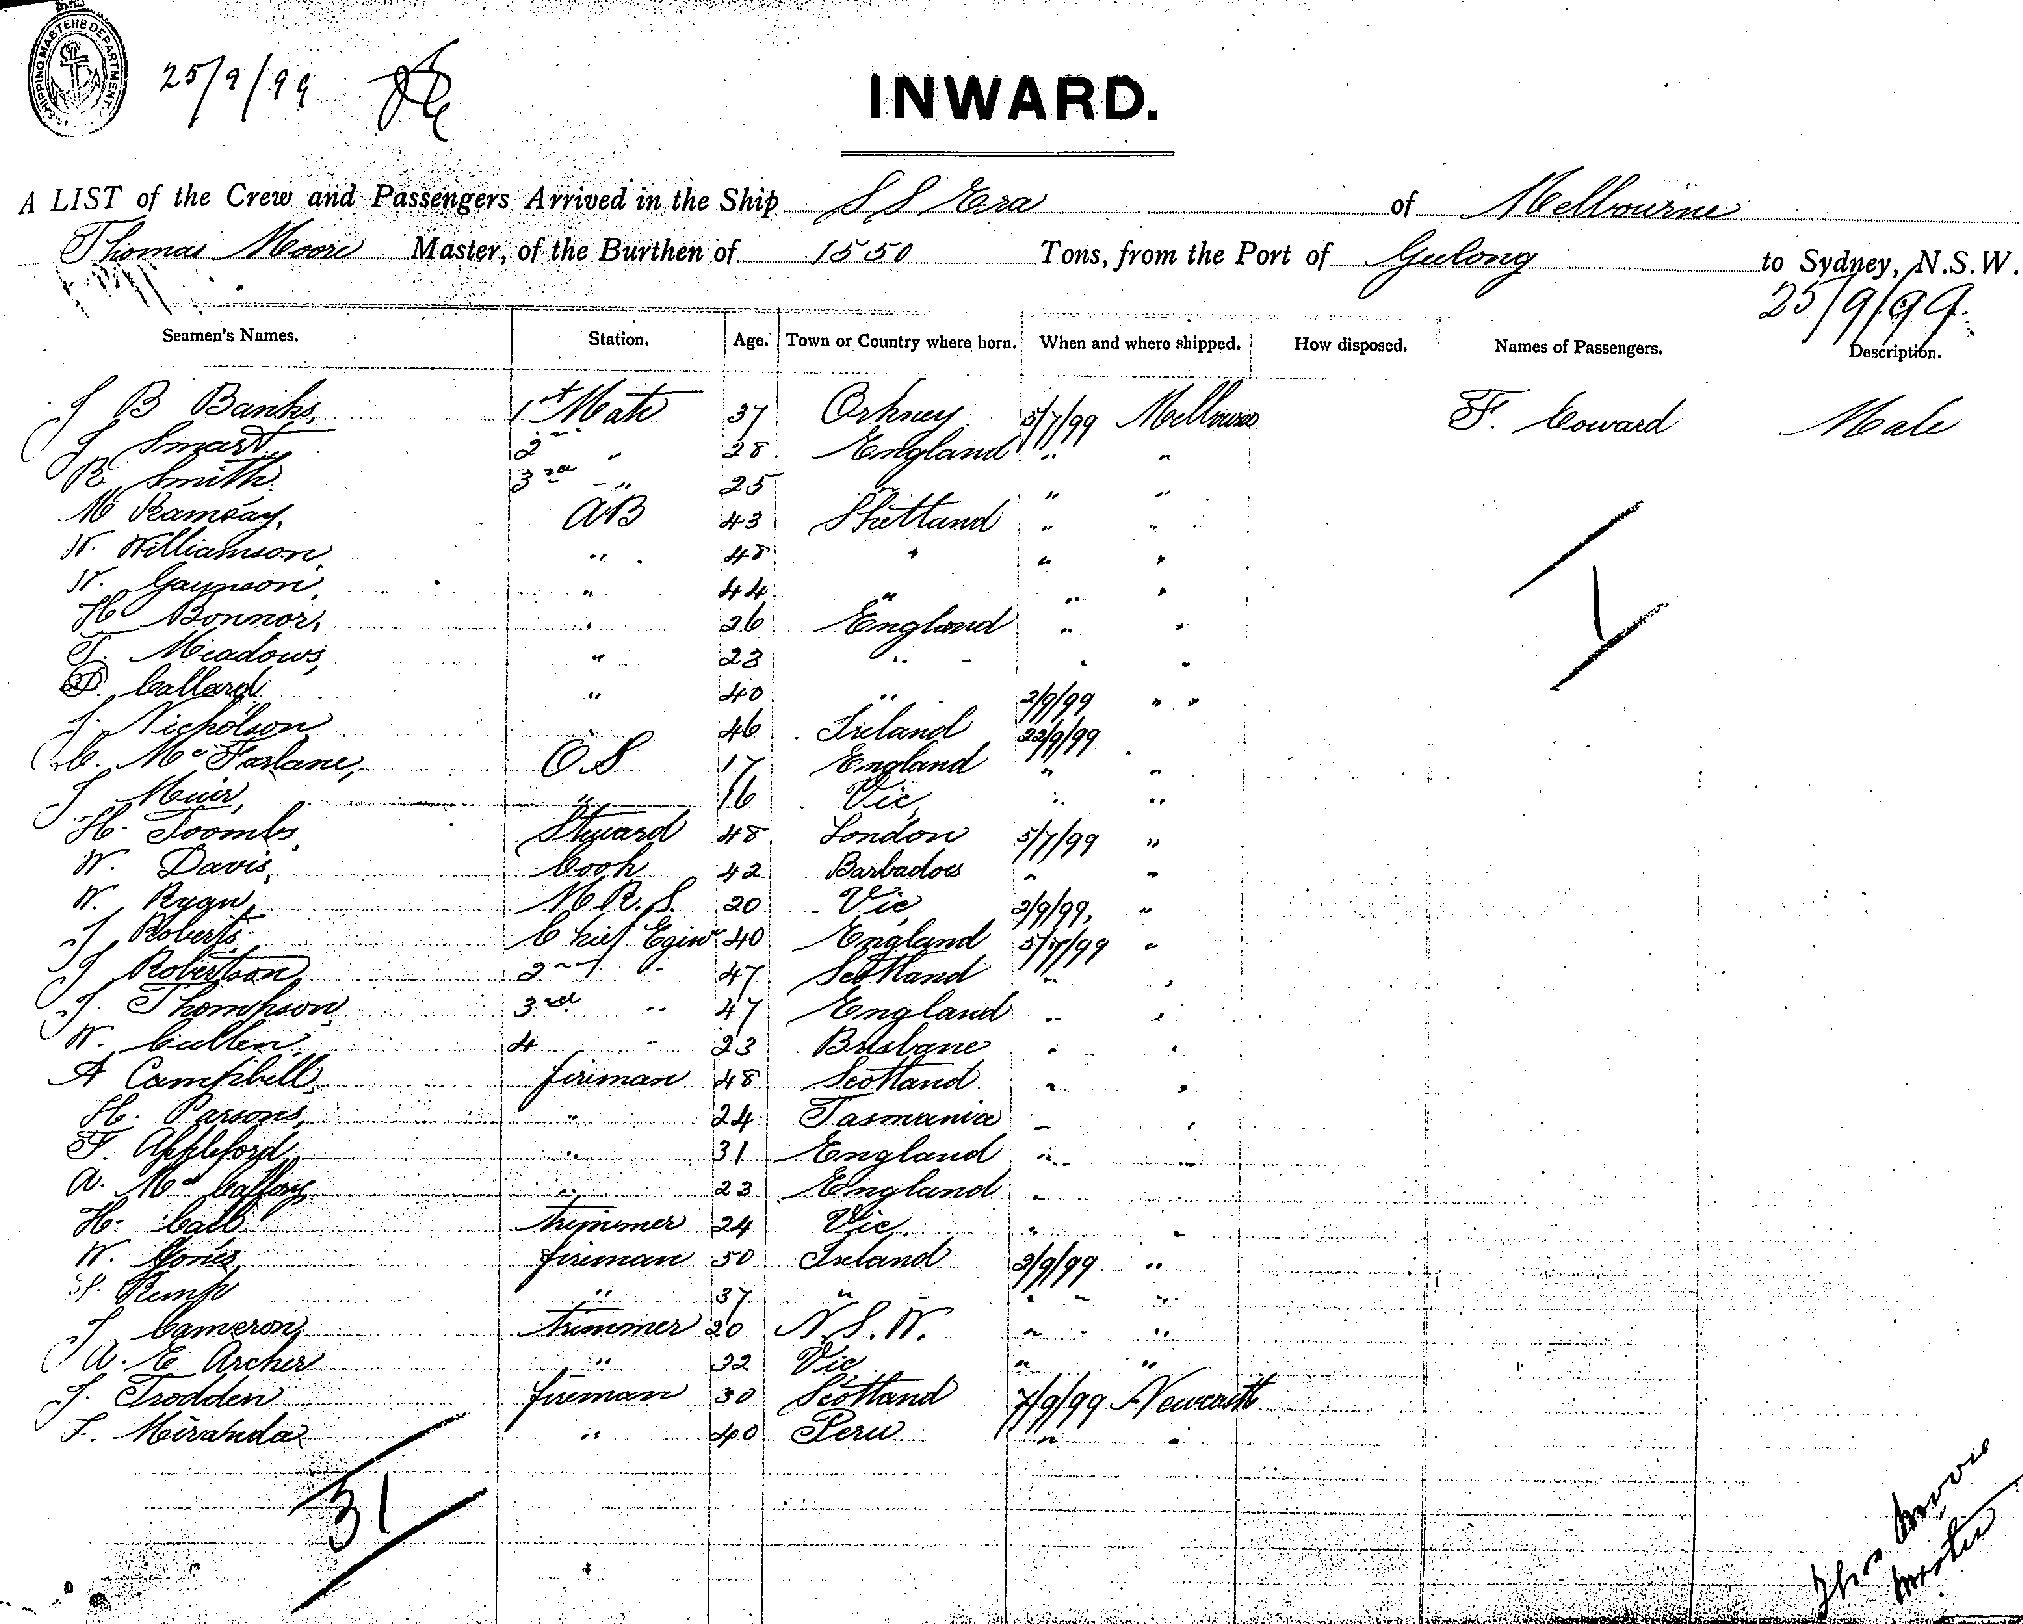 SHIPPING MASTERS DEPARTMENT
25/9/99
INWARD.
A LIST of the Crew and Passengers Arrived in the Ship S S Era of Melbourne
Thomas Moore Master, of the Burthen of 1550 Tons, from the Port of Geelong to Sydney, N.S.W.
25/9/99.
Seamen's Names. Station. Age. Town or Country where born. When and where shipped. How disposed. Names of Passengers. Description.
J B Banks, 1st Mate 37 Orkney 5/7/99 Melbourne F. Coward Male
J Smart 2nd " 28 England " "
R Smith 3rd " 25 " " "
M Ramsay, AB 43 Shetland " "
W. Williamson, " 48 " " "
W. Gaunson, " 44 " " "
H Bonnor, " 26 England " "
T. Meadows, " 23 " " "
D. Callard " 40 " 2/9/99 " "
J. Nicholson 46 Ireland 22/9/99
C. McFarlane, O S 17 England " "
J Muir, " 16 Vic, " "
H. Toombs, Steward 48 London 5/7/99 "
W. Davis, Cook 42 Barbadoes " "
W. Ryan, M. R. S. 20 Vic, 2/9/99, "
J Roberts Chief Eginr 40 England 5/7/99 "
J Robertson 2nd " 47 Scotland " "
J. Thompson 3rd " 47 England " "
W. Cullen, 4 " 23 Brisbane " "
A Campbell, fireman 48 Scotland " "
H. Parsons, " 24 Tasmania " "
F. Appleford, " 31 England " "
A. Mc " 23 England "
H. Call trimmer 24 Vic " "
W. Jones, fireman 50 Ireland 2/9/99 "
Kemp " 37 " " "
J Cameron, trimmer 20 N. S. W. " "
A. E Archer " 22 Vic " "
J. Trodden fireman 30 Scotland 7/9/99 Newcastle
F. Miranda " 40 Peru " "
1
31
Thos Moore
Master